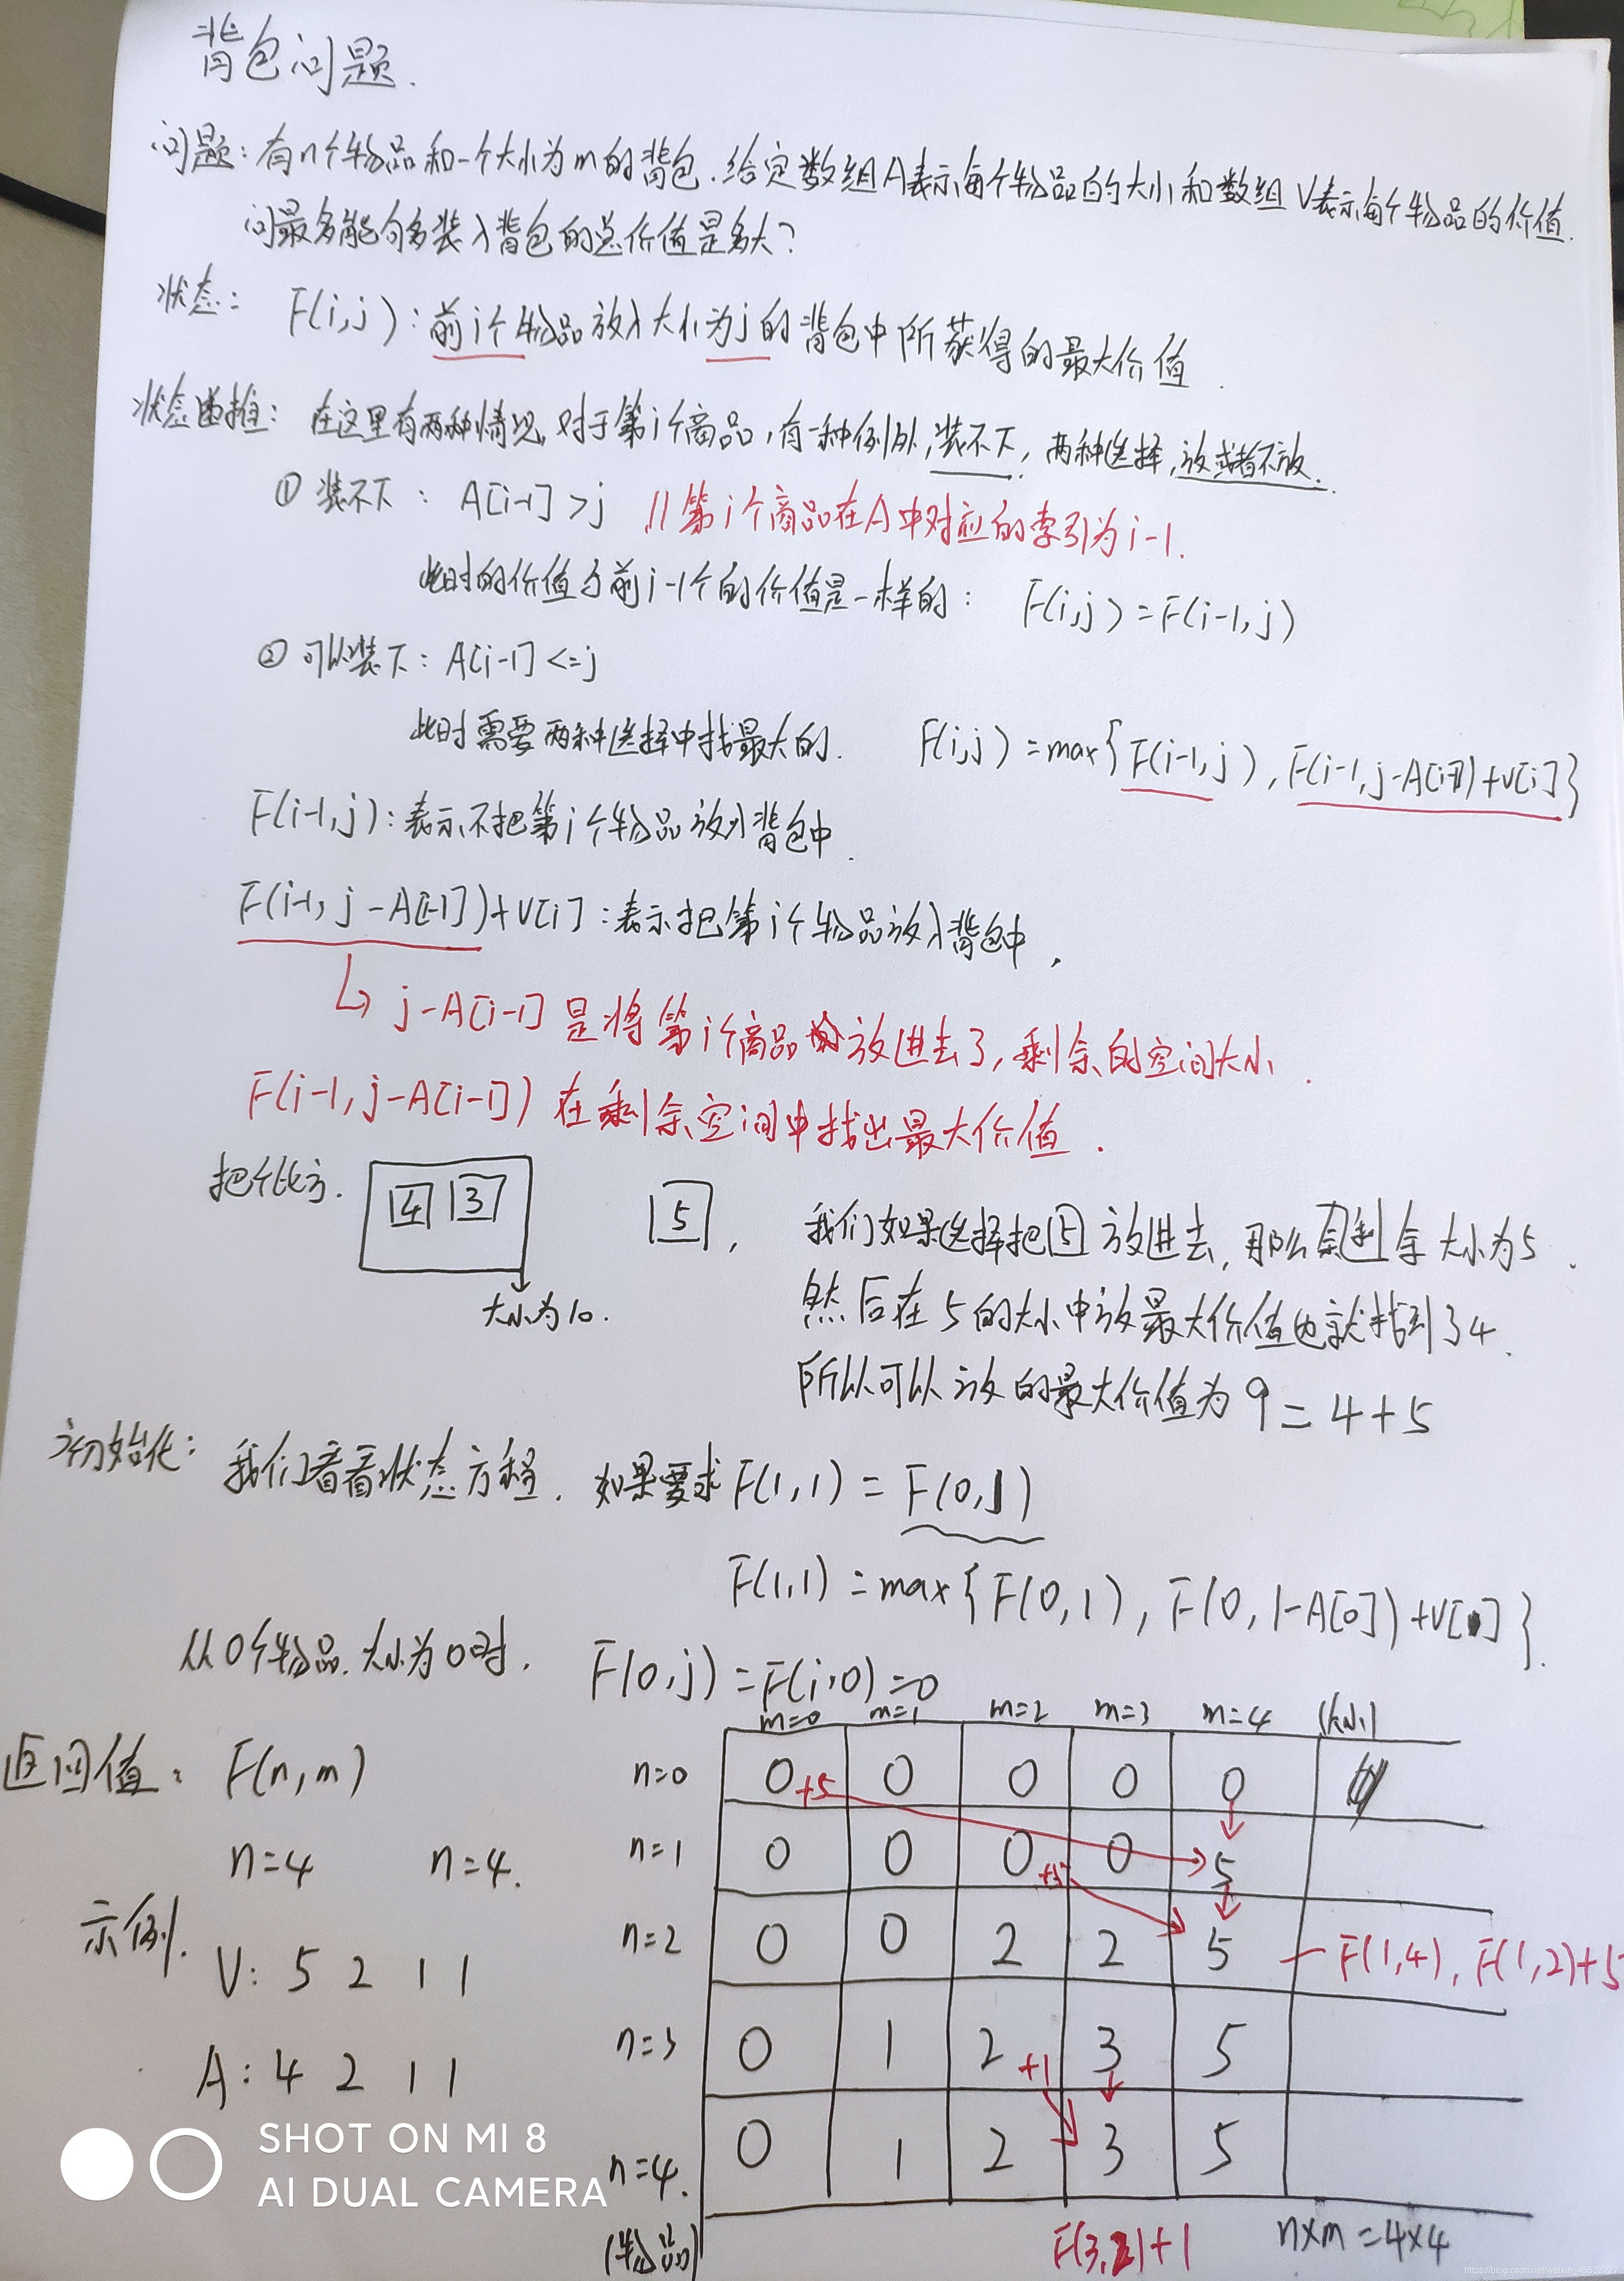 背包问题.
问题:有n个物品和一个大小为m的背包.给定数组A表示每个物品的大小和数组V表示每个物品的价值.
问最多能够多装入背包的总价值是多大?
状态: F(i,j):前i个物品放入大小为j的背包中所获得的最大价值.
状态递推: 在这里有两种情况,对于第i个商品,有一种例外,装不下,两种选择,放或者不放.
① 装不下: A[i-1]>j //第i个商品在A中对应的索引为i-1.
此时的价值与前i-1个的价值是一样的: F(i,j)=F(i-1,j)
② 可以装下: A[i-1]<=j
此时需要两种选择中找最大的. F(i,j)=max{F(i-1,j),F(i-1,j-A[i-1])+V[i]}
F(i-1,j):表示不把第i个物品放入背包中.
F(i-1,j-A[i-1])+V[i]:表示把第i个物品放入背包中,
j-A[i-1] 是将第i个商品放进去了,剩余的空间大小.
F(i-1,j-A[i-1]) 在剩余空间中找出最大价值.
把个比方. 4 3 5,
大小为10.
我们如果选择把5放进去,那么剩余大小为5.
然后在5的大小中放最大价值也就找到了4.
所以可以放的最大价值为9=4+5
初始化: 我们看看状态方程. 如果要求F(1,1)=F(0,1)
F(1,1)=max{F(0,1),F(0,1-A[0])+V[]}.
从0个物品.大小为0时. F(0,j)=F(i,0)=0
返回值: F(n,m)
n=4 n=4.
示例.
V: 5 2 1 1
A: 4 2 1 1
m=0 m=1 m=2 m=3 m=4 (大小)
n=0 0 +5 0 0 0 0
n=1 0 0 0 +5 0 5
n=2 0 0 2 2 5 — F(1,4), F(1,2)+5
n=3 0 1 2 +1 3 5
n=4. 0 1 2 3 5
(物品) F(3,2)+1 n×m=4×4
SHOT ON MI 8
AI DUAL CAMERA